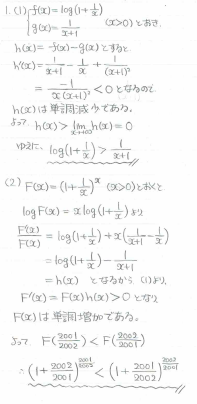 1.(1) f(x)=log(1+1/x)
g(x)=1/(x+1) (x>0)とおき、
h(x)=f(x)-g(x)とすると
h'(x)=1/(x+1)-1/x+1/(x+1)²
=-1/(x(x+1)²)<0となるので
h(x)は単調減少である。
よってh(x)>lim[x→+∞]h(x)=0
ゆえに、log(1+1/x)>1/(x+1)
(2) F(x)=(1+1/x)^x (x>0)とおくと
logF(x)=xlog(1+1/x)より
F'(x)/F(x)=log(1+1/x)+x(1/(x+1)-1/x)
=log(1+1/x)-1/(x+1)
=h(x) となるから、(1)より、
F'(x)=F(x)h(x)>0となり
F(x)は単調増加である。
よって F(2001/2002)<F(2002/2001)
∴(1+2002/2001)^(2001/2002)<(1+2001/2002)^(2002/2001)